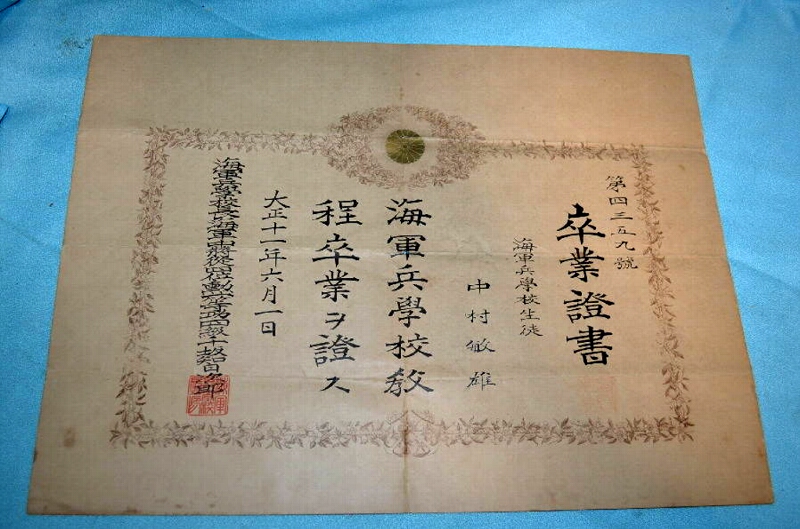 第四三五九號
卒業證書
海軍兵學校生徒
中村敏雄
海軍兵學校教
程卒業ヲ證ス
大正十一年六月一日
海軍兵學校長海軍中將從四位勲二等功四級千坂智次郎